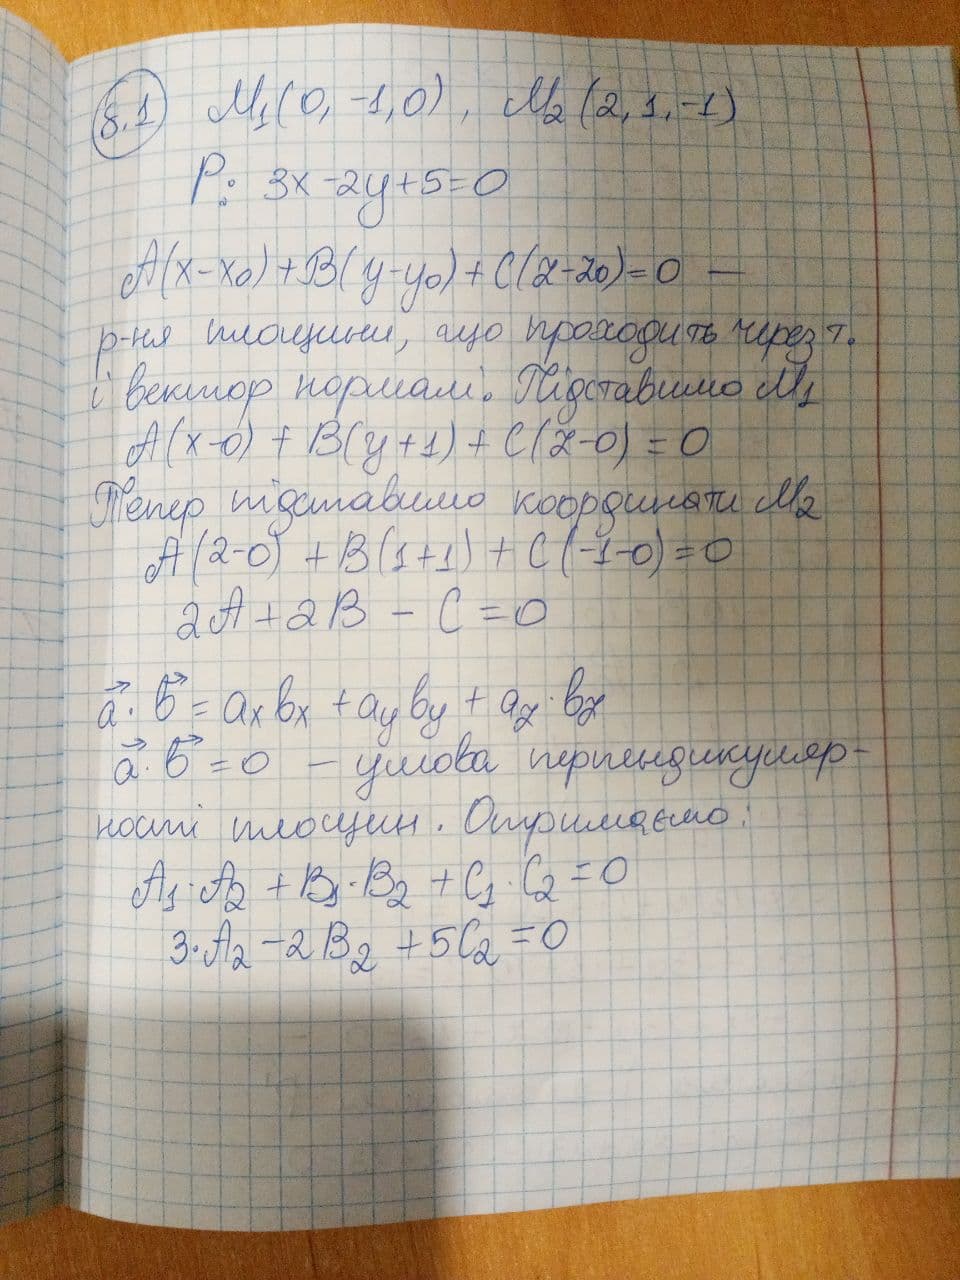 8.1 M₁(0, -1, 0), M₂(2, 1, -1)
P: 3x - 2y + 5 = 0
A(x - x₀) + B(y - y₀) + C(z - z₀) = 0 —
р-ня площини, що проходить через т.
і вектор нормалі. Підставимо M₁
A(x - 0) + B(y + 1) + C(z - 0) = 0
Тепер підставимо координати M₂
A(2 - 0) + B(1 + 1) + C(-1 - 0) = 0
2A + 2B - C = 0
a⃗ · b⃗ = aₓbₓ + a_y b_y + a_z · b_z
a⃗ · b⃗ = 0 — умова перпендикуляр-
ності площин. Отримаємо:
A₁ · A₂ + B₁ · B₂ + C₁ · C₂ = 0
3 · A₂ - 2B₂ + 5C₂ = 0